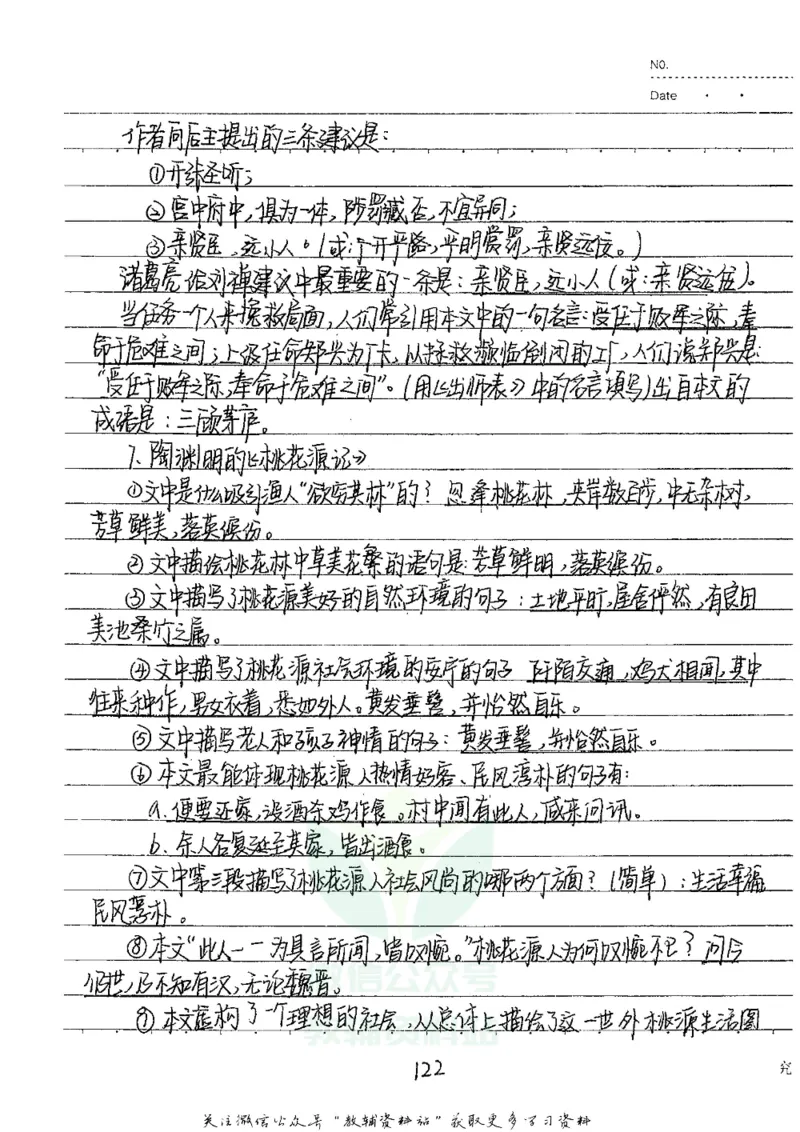 NO.
Date
作者向后主提出的三条建议是:
①开张圣听;
②宫中府中,俱为一体,陟罚臧否,不宜异同;
③亲贤臣,远小人。(或:开平路,平明赏罚,亲贤远佞。)
诸葛亮给刘禅建议中最重要的一条是:亲贤臣,远小人(或:亲贤远佞)。
当任务一个人来挽救局面,人们常引用本文中的一句名言:受任于败军之际,奉
命于危难之间;上级任命郑兴为厂长,以拯救濒临倒闭的工厂,人们说郑兴是:
“受任于败军之际,奉命于危难之间”。(用《出师表》中的名言填写)出自本文的
成语是:三顾茅庐。
7、陶渊明的《桃花源记》
①文中是什么吸引渔人“欲穷其林”的?忽逢桃花林,夹岸数百步,中无杂树,
芳草鲜美,落英缤纷。
②文中描绘桃花林中草美花繁的语句是:芳草鲜明,落英缤纷。
③文中描写了桃花源美好的自然环境的句子:土地平旷,屋舍俨然,有良田
美池桑竹之属。
④文中描写了桃花源社会环境的安宁的句子 阡陌交通,鸡犬相闻,其中
往来种作,男女衣着,悉如外人。黄发垂髫,并怡然自乐。
⑤文中描写老人和孩子神情的句子:黄发垂髫,并怡然自乐。
⑥本文最能体现桃花源人热情好客、民风淳朴的句子有:
a.便要还家,设酒杀鸡作食。村中闻有此人,咸来问讯。
b.余人各复延至其家,皆出酒食。
⑦文中第三段描写了桃花源人社会风尚的哪两个方面?(简单):生活幸福
民风淳朴。
⑧本文“此人一一为具言所闻,皆叹惋。”桃花源人为何叹惋不已?问今
何世,乃不知有汉,无论魏晋。
⑨本文虚构了一个理想的社会,从总体上描绘了这一世外桃源生活图
122
究
教辅资料站
关注微信公众号“教辅资料站”获取更多学习资料